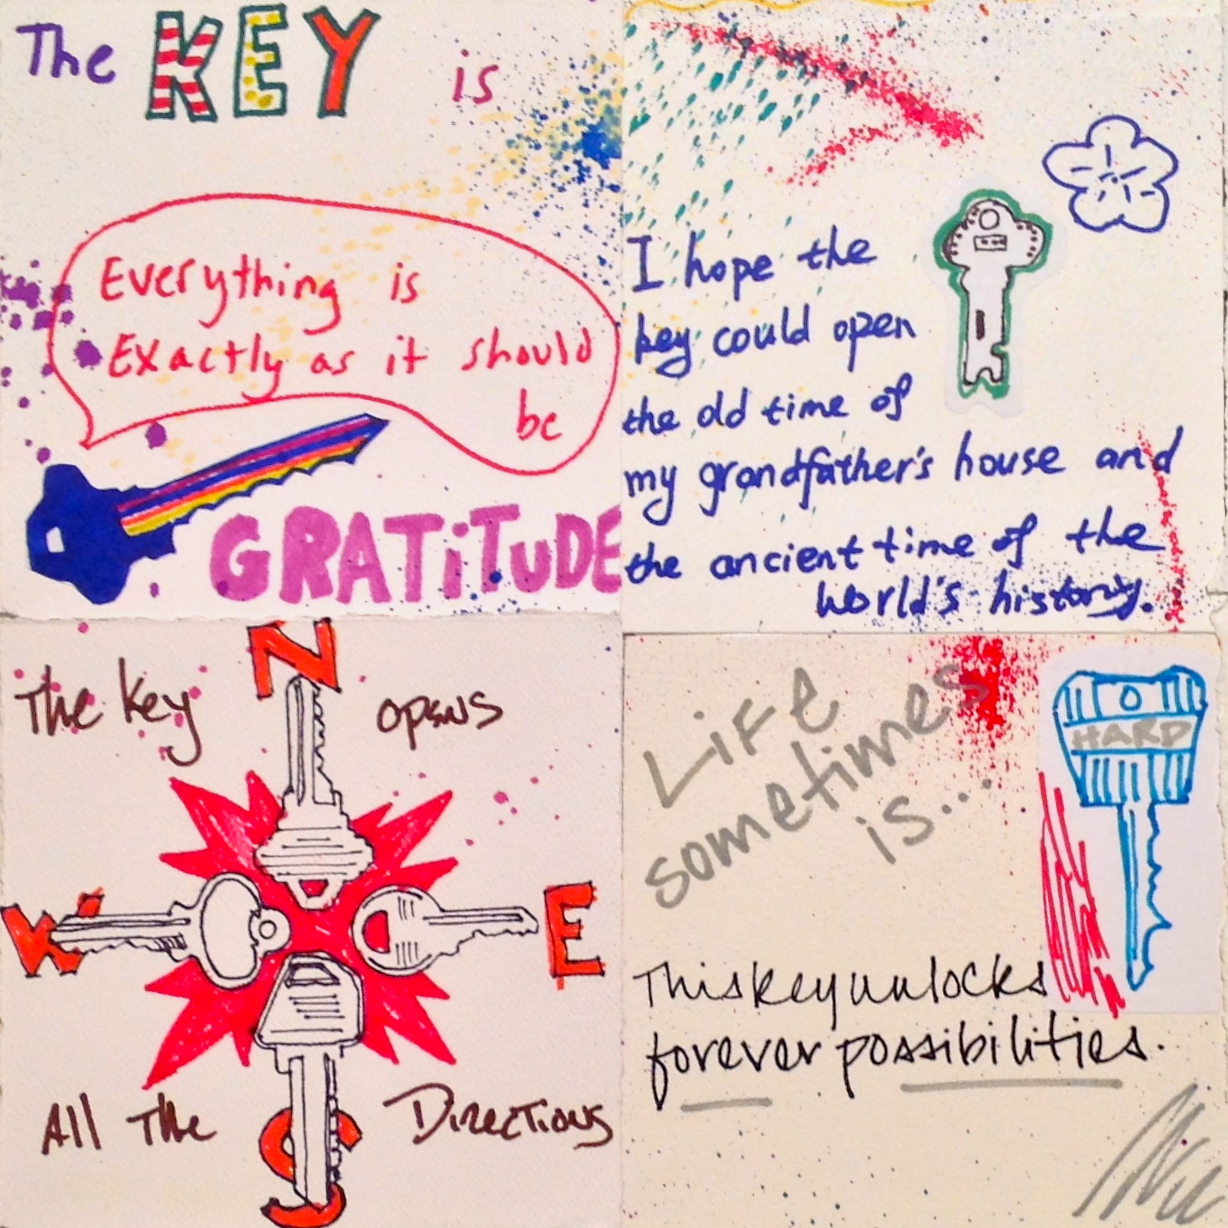 The KEY is
Everything is
Exactly as it should
be
GRATiTUDE
I hope the
key could open
the old time of
my grandfather's house and
the ancient time of the
world's history.
The key opens
N
W E
S
All The Directions
Life
sometimes
is...
HARD
This key unlocks
forever possibilities.